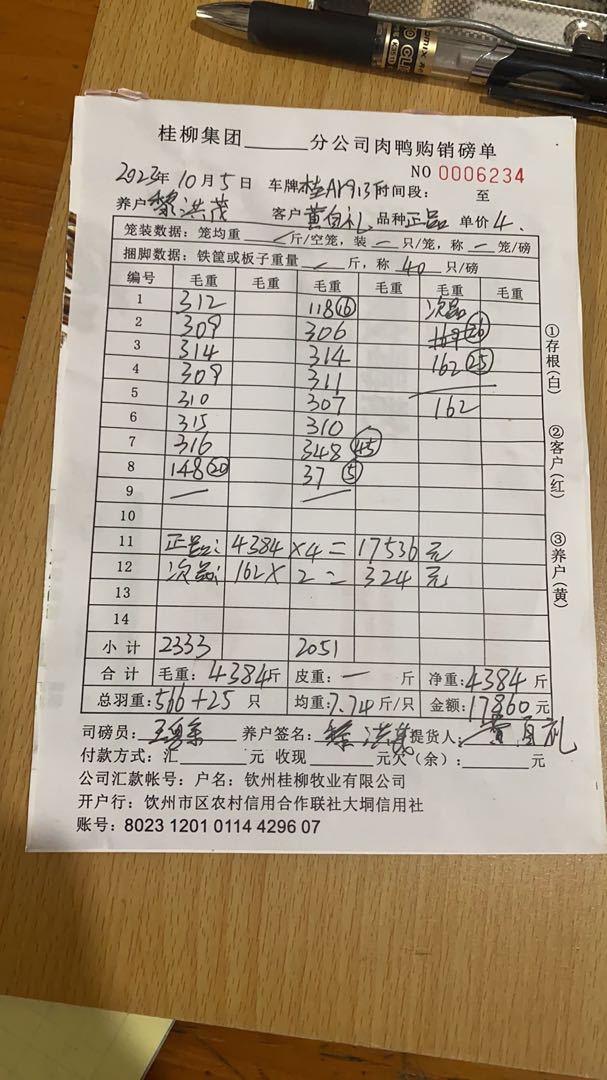 桂柳集团______分公司肉鸭购销磅单
NO 0006234
2023年10月5日 车牌 时间段: 至
养户 黎洪茂 客户 黄 礼 品种 正品 单价 4.
笼装数据:笼均重 斤/空笼,装 一 只/笼,称 一 笼/磅
捆脚数据:铁筐或板子重量 斤,称 40 只/磅
编号 毛重 毛重 毛重 毛重 毛重 毛重
1 312 118 (16) 次品
2 309 306 169 (26)
3 314 314 162 (25)
4 309 311
5 310 307 162
6 315 310
7 316 348 (45)
8 148 (20) 37 (5)
9 — —
10
11 正品: 4384×4=17536元
12 次品: 162×2=324元
13
14
小计 2333 2051
合计 毛重:4384斤 皮重:一 斤 净重:4384斤
总羽重:566+25 只 均重:7.74斤/只 金额:17860元
司磅员: 养户签名: 提货人:
付款方式:汇______元 收现______元欠(余):______元
公司汇款帐号:户名:钦州桂柳牧业有限公司
开户行:钦州市区农村信用合作联社大垌信用社
账号:8023 1201 0114 4296 07
①存根(白)
②客户(红)
③养户(黄)